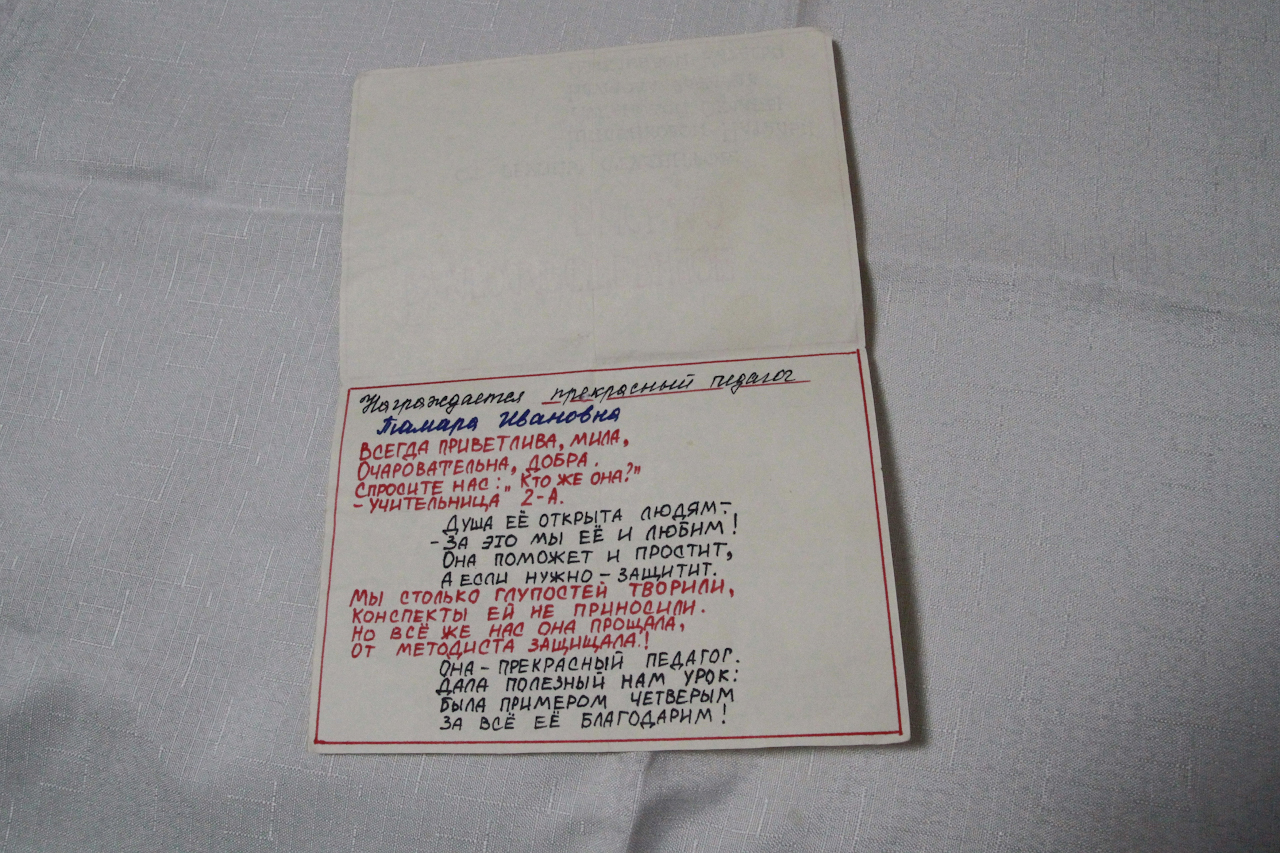 Награждается прекрасный педагог
Тамара Ивановна
ВСЕГДА ПРИВЕТЛИВА, МИЛА,
ОЧАРОВАТЕЛЬНА, ДОБРА.
СПРОСИТЕ НАС: „КТО ЖЕ ОНА?"
– УЧИТЕЛЬНИЦА 2-А.
ДУША ЕЁ ОТКРЫТА ЛЮДЯМ –
– ЗА ЭТО МЫ ЕЁ И ЛЮБИМ!
ОНА ПОМОЖЕТ И ПРОСТИТ,
А ЕСЛИ НУЖНО – ЗАЩИТИТ.
МЫ СТОЛЬКО ГЛУПОСТЕЙ ТВОРИЛИ,
КОНСПЕКТЫ ЕЙ НЕ ПРИНОСИЛИ.
НО ВСЁ ЖЕ НАС ОНА ПРОЩАЛА,
ОТ МЕТОДИСТА ЗАЩИЩАЛА!
ОНА – ПРЕКРАСНЫЙ ПЕДАГОГ.
ДАЛА ПОЛЕЗНЫЙ НАМ УРОК:
БЫЛА ПРИМЕРОМ ЧЕТВЕРЫМ
ЗА ВСЁ ЕЁ БЛАГОДАРИМ!